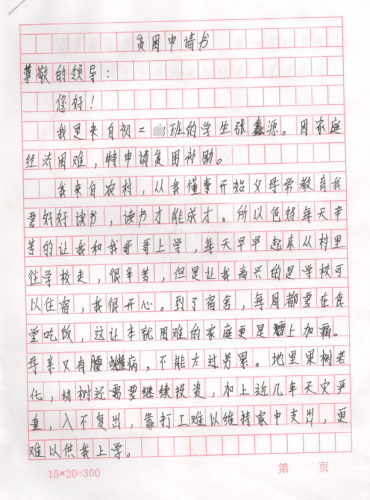 贫困申请书
尊敬的领导：
您好！
我是来自初二 班的学生张鑫源。因家庭
经济困难，特申请贫困补助。
我来自农村，从我懂事开始父母常教育我
要好好读书，读书才能成才。所以包括每天辛
苦的让我和我哥哥上学，每天早早起床从村里
往学校走，很辛苦，但是让我高兴的是学校可
以住宿，我很开心。到了宿舍，每周都要在食
堂吃饭，这让本就困难的家庭更是 上加霜。
母亲又有腰 病，不能太过劳累。地里果树老
化，树还需要继续投资，加上近几年天灾严
重，入不复出，靠打工难以维持家中支出，更
难以供我上学。
15×20=300
第 页